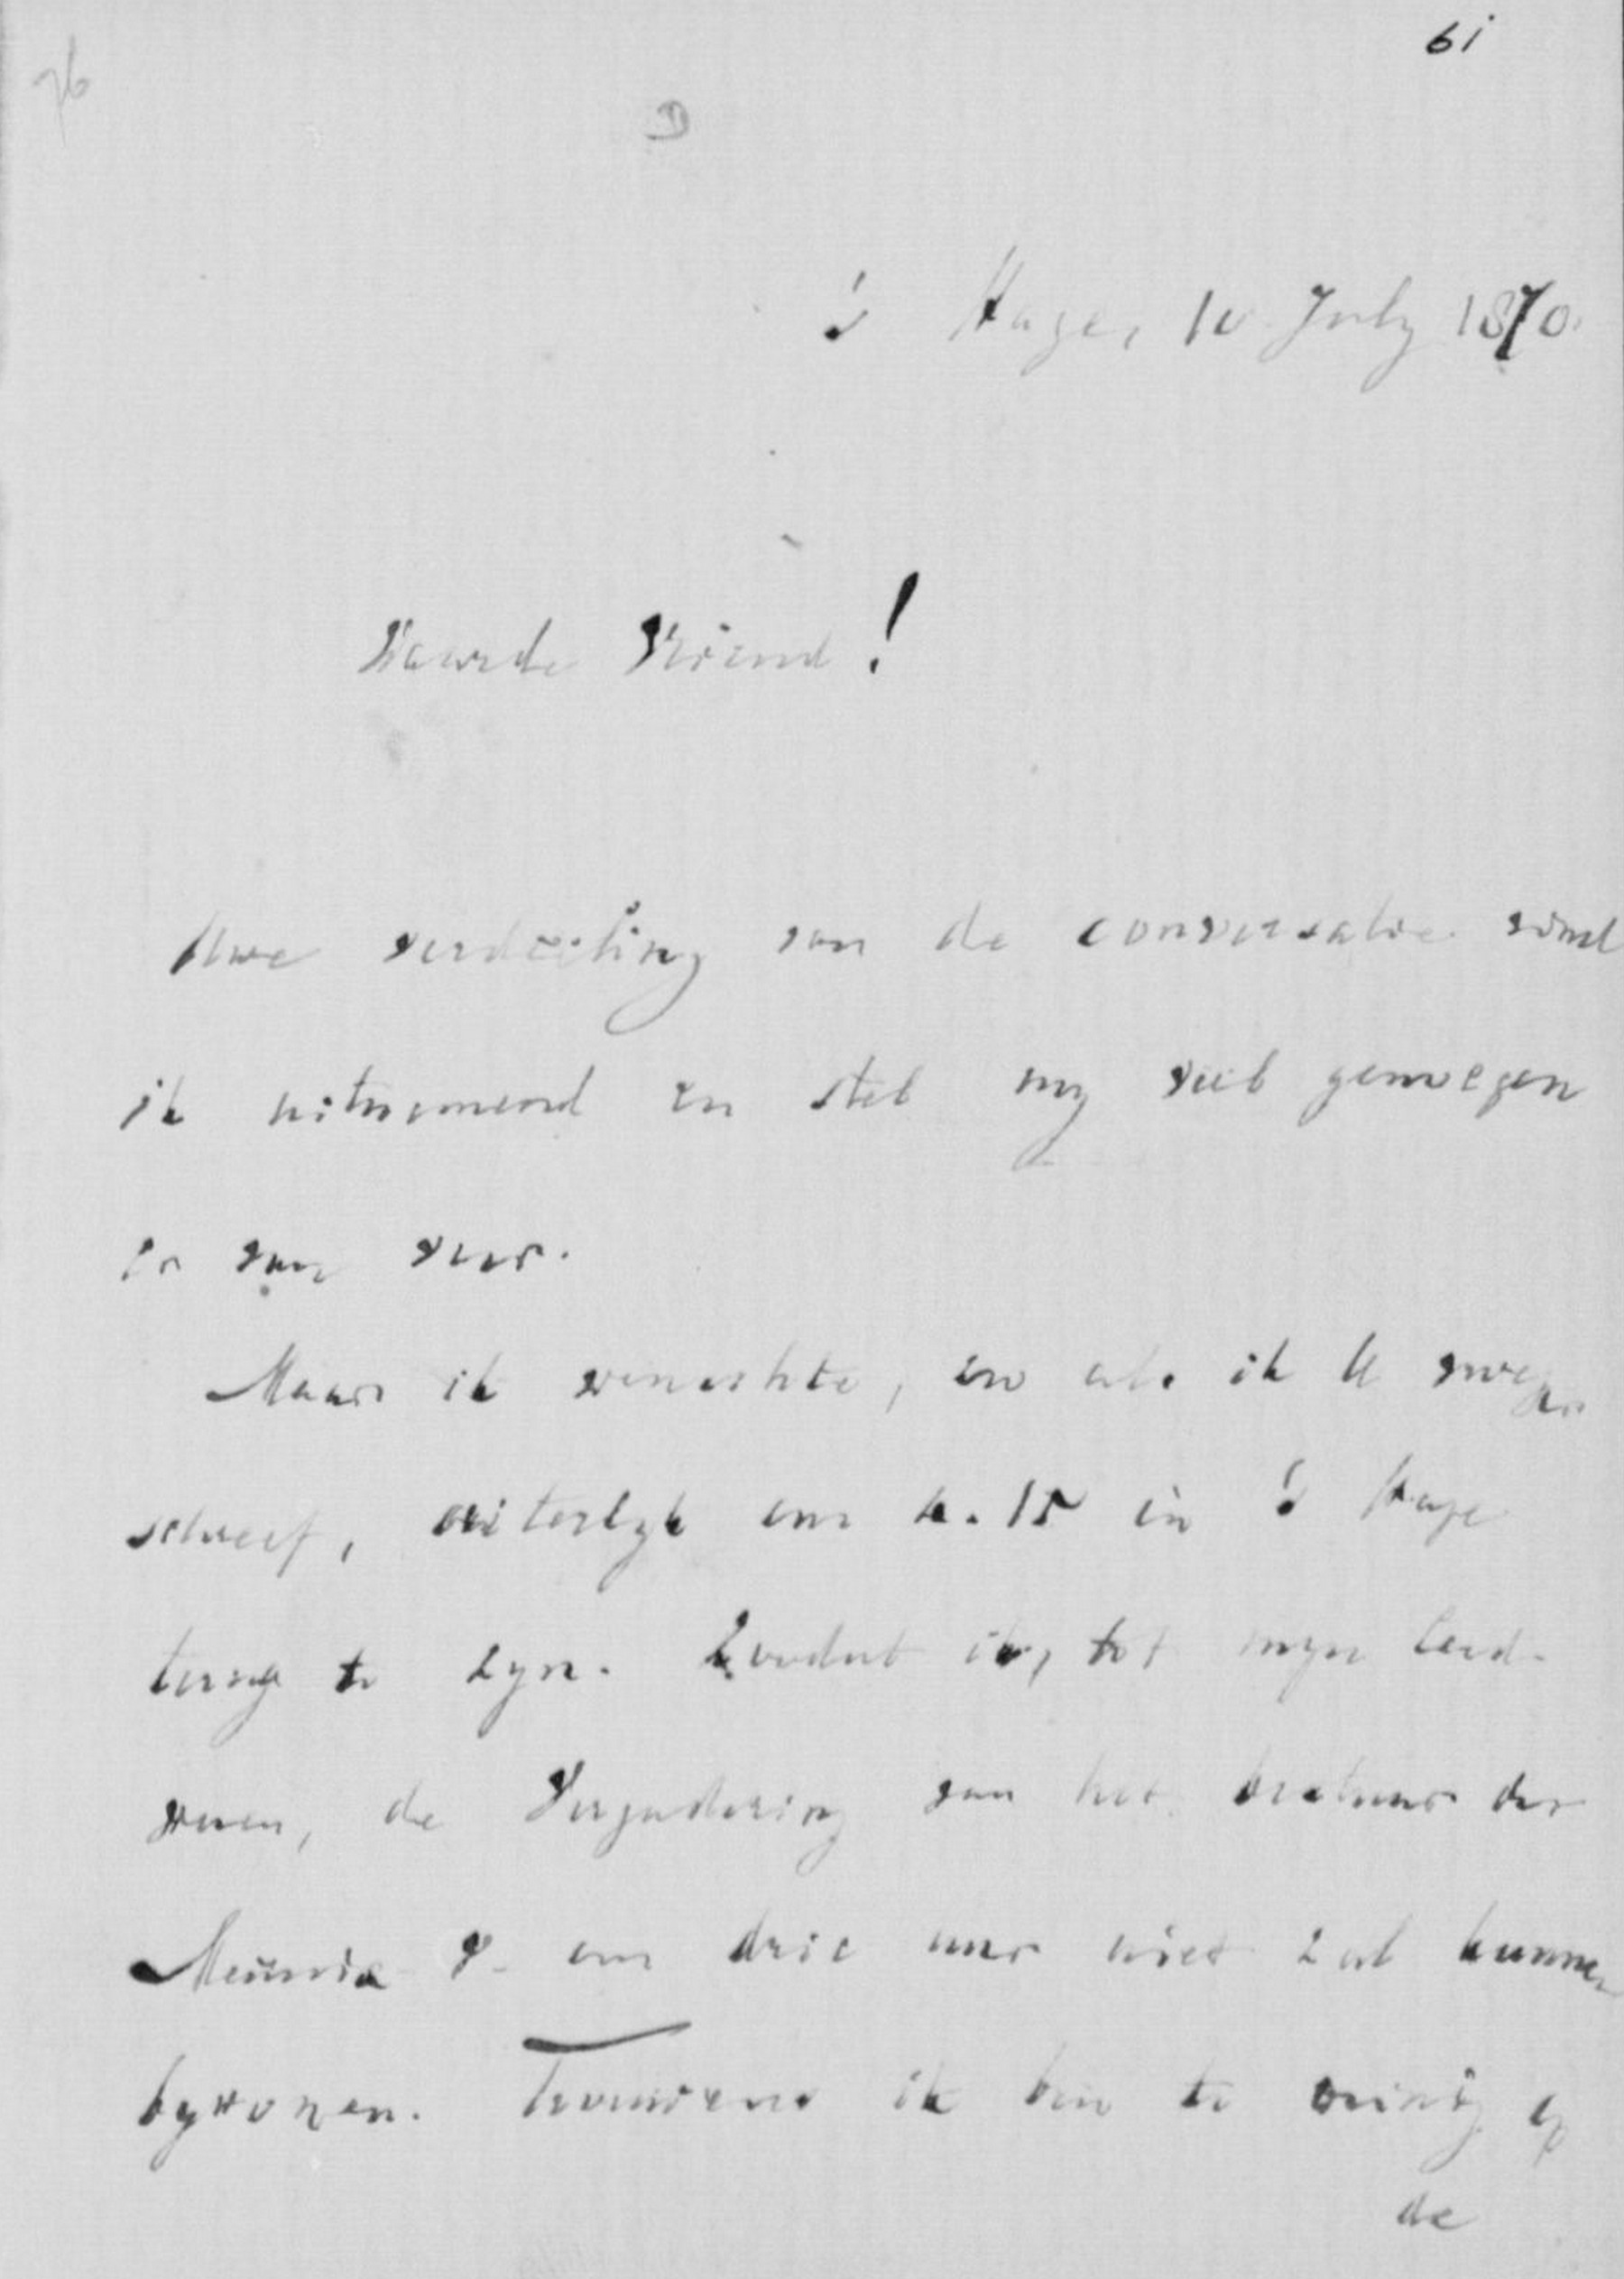 61
76
D
's Hage, 10 July 1870.
Waarde Vriend!
Uwe verdeeling van de conversatie vind
ik uitnemend en stel my veel genoegen
er van voor.
Maar ik wenschte, zoo als ik U vroeger
schreef, uiterlyk om 4.15 in 's Hage
terug te zyn. Zoodat ik, tot myn leed-
wezen, de Vergadering van het bestuur der
om drie uur niet zal kunnen
bywonen. Trouwens ik ben te weinig op
de